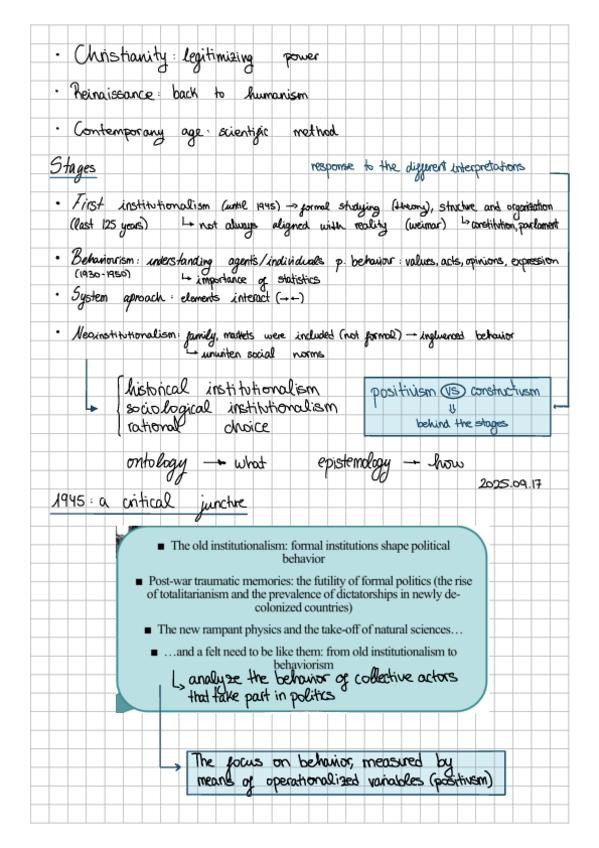 · Christianity: legitimizing power
· Reinaissance: back to humanism
· Contemporany age: scientific method
Stages
response to the different interpretations
· First institutionalism (until 1945) → formal studying (theory), structure and organisation
(last 125 years) ↳ not always aligned with reality (weimar) ↳ constitution, parlament
· Behaviourism: understanding agents/individuals p. behavior: values, acts, opinions, expression
(1930-1950) ↳ importance of statistics
· System aproach: elements interact (→←)
· Neoinstitutionalism: family, markets were included (not formal) → influenced behavior
↳ unwriten social norms
historical institutionalism
sociological institutionalism
rational choice
positivism VS constructivism
⇓
behind the stages
ontology → what epistemology → how
2025.09.17
1945: a critical juncture
■ The old institutionalism: formal institutions shape political
behavior
■ Post-war traumatic memories: the futility of formal politics (the rise
of totalitarianism and the prevalence of dictatorships in newly de-
colonized countries)
■ The new rampant physics and the take-off of natural sciences…
■ …and a felt need to be like them: from old institutionalism to
behaviorism
↳ analyze the behavior of collective actors
that take part in politics
The focus on behavior, measured by
means of operationalized variables (positivism)